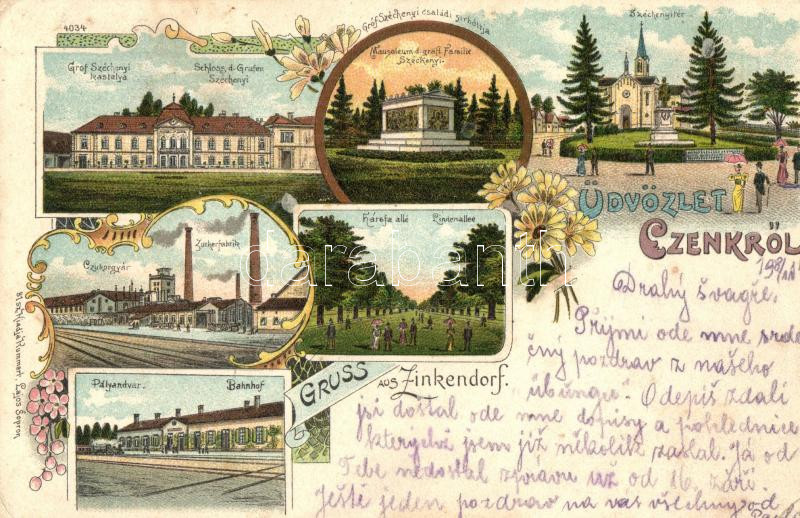 4034
Gróf Széchenyi
kastélya
Schloss d. Grafen
Széchenyi
Gróf Széchenyi családi sirboltja
Mausoleum d. gräfl. Familie
Széchenyi
Széchenyi tér
ÜDVÖZLET
CZENKRŐL
Czukorgyár
Zuckerfabrik
Hársfa allé
Lindenallee
Pályaudvar.
Bahnhof
GRUSS AUS Zinkendorf.
Kiadja Kummert Lajos Sopron
darabanth
Drahý švagře,
Přijmi ode mne srde
čný pozdrav z našeho
Odepiš zdali
jsi dostal ode mne dopisy a pohlednice
kterých jsem již několik zaslal. Já od
Tebe nedostal zprávu už od 16. září.
Ještě jeden pozdrav na vás všechny od